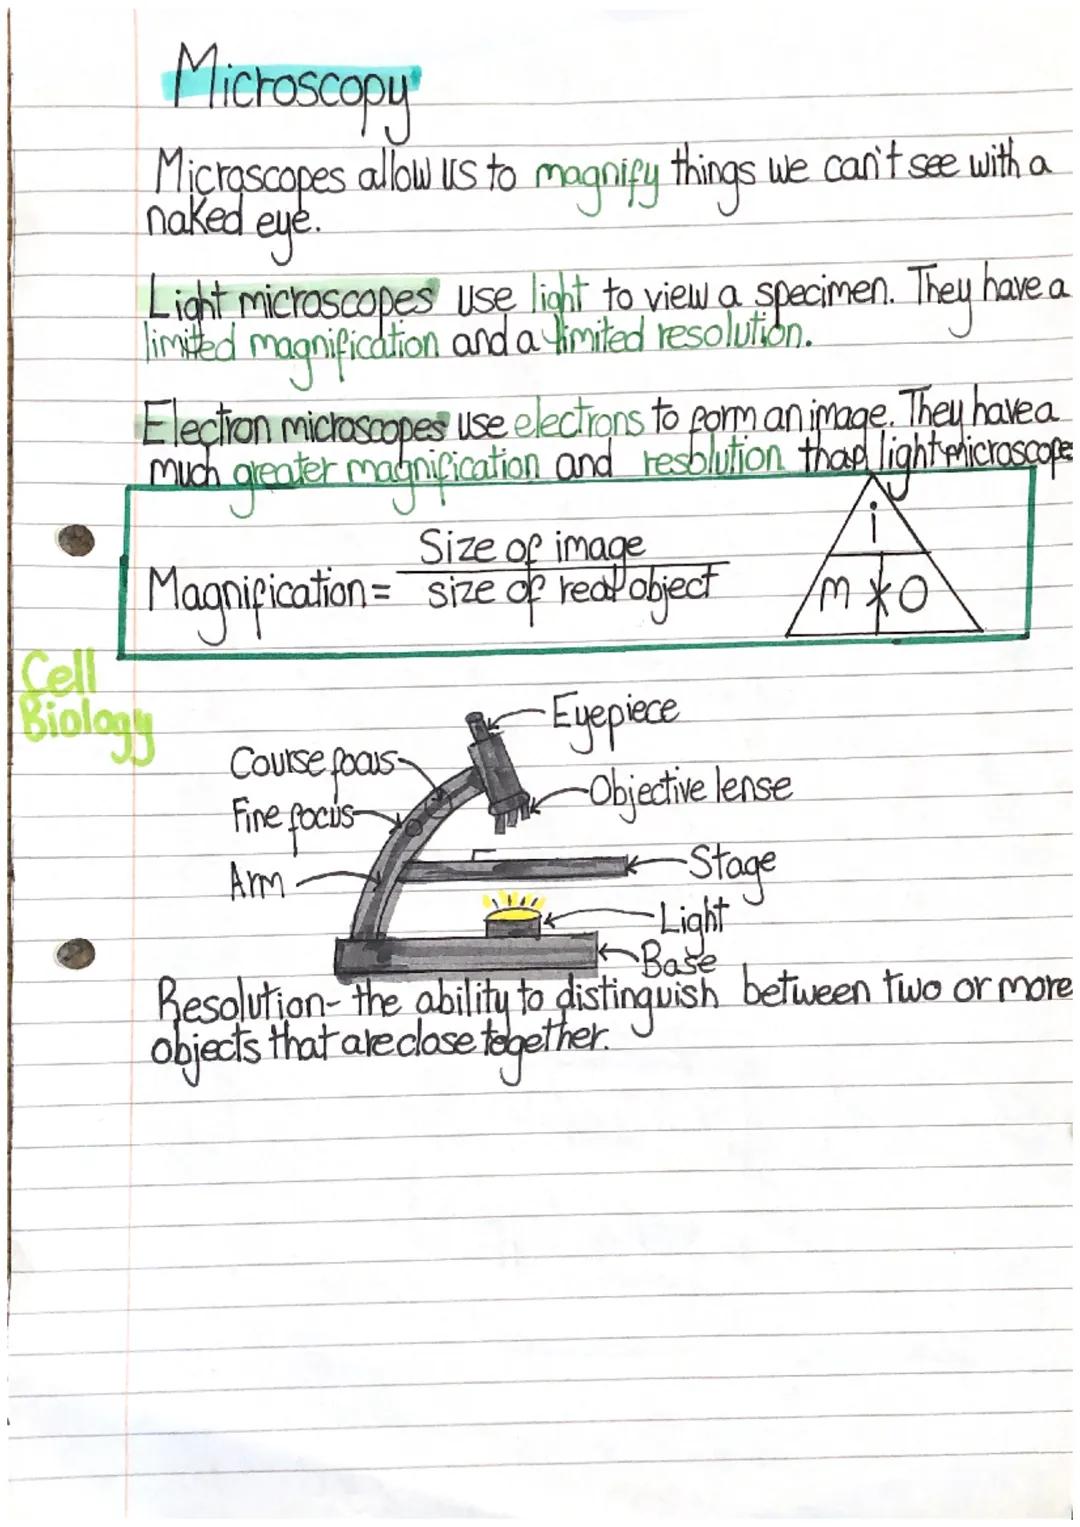 Microscopy
Microscopes allow us to magnify things we can't see with a
naked eye.
Light microscopes use light to view a specimen. They have a
limited magnification and a limited resolution.
Electron microscopes use electrons to form an image. They have a
much greater magnification and resolution than light microscope
Size of image
Magnification = size of real object
i
m * O
Cell
Biology
Eyepiece
Course focus
Objective lense
Fine focus
Stage
Arm
Light
Base
Resolution - the ability to distinguish between two or more
objects that are close together.